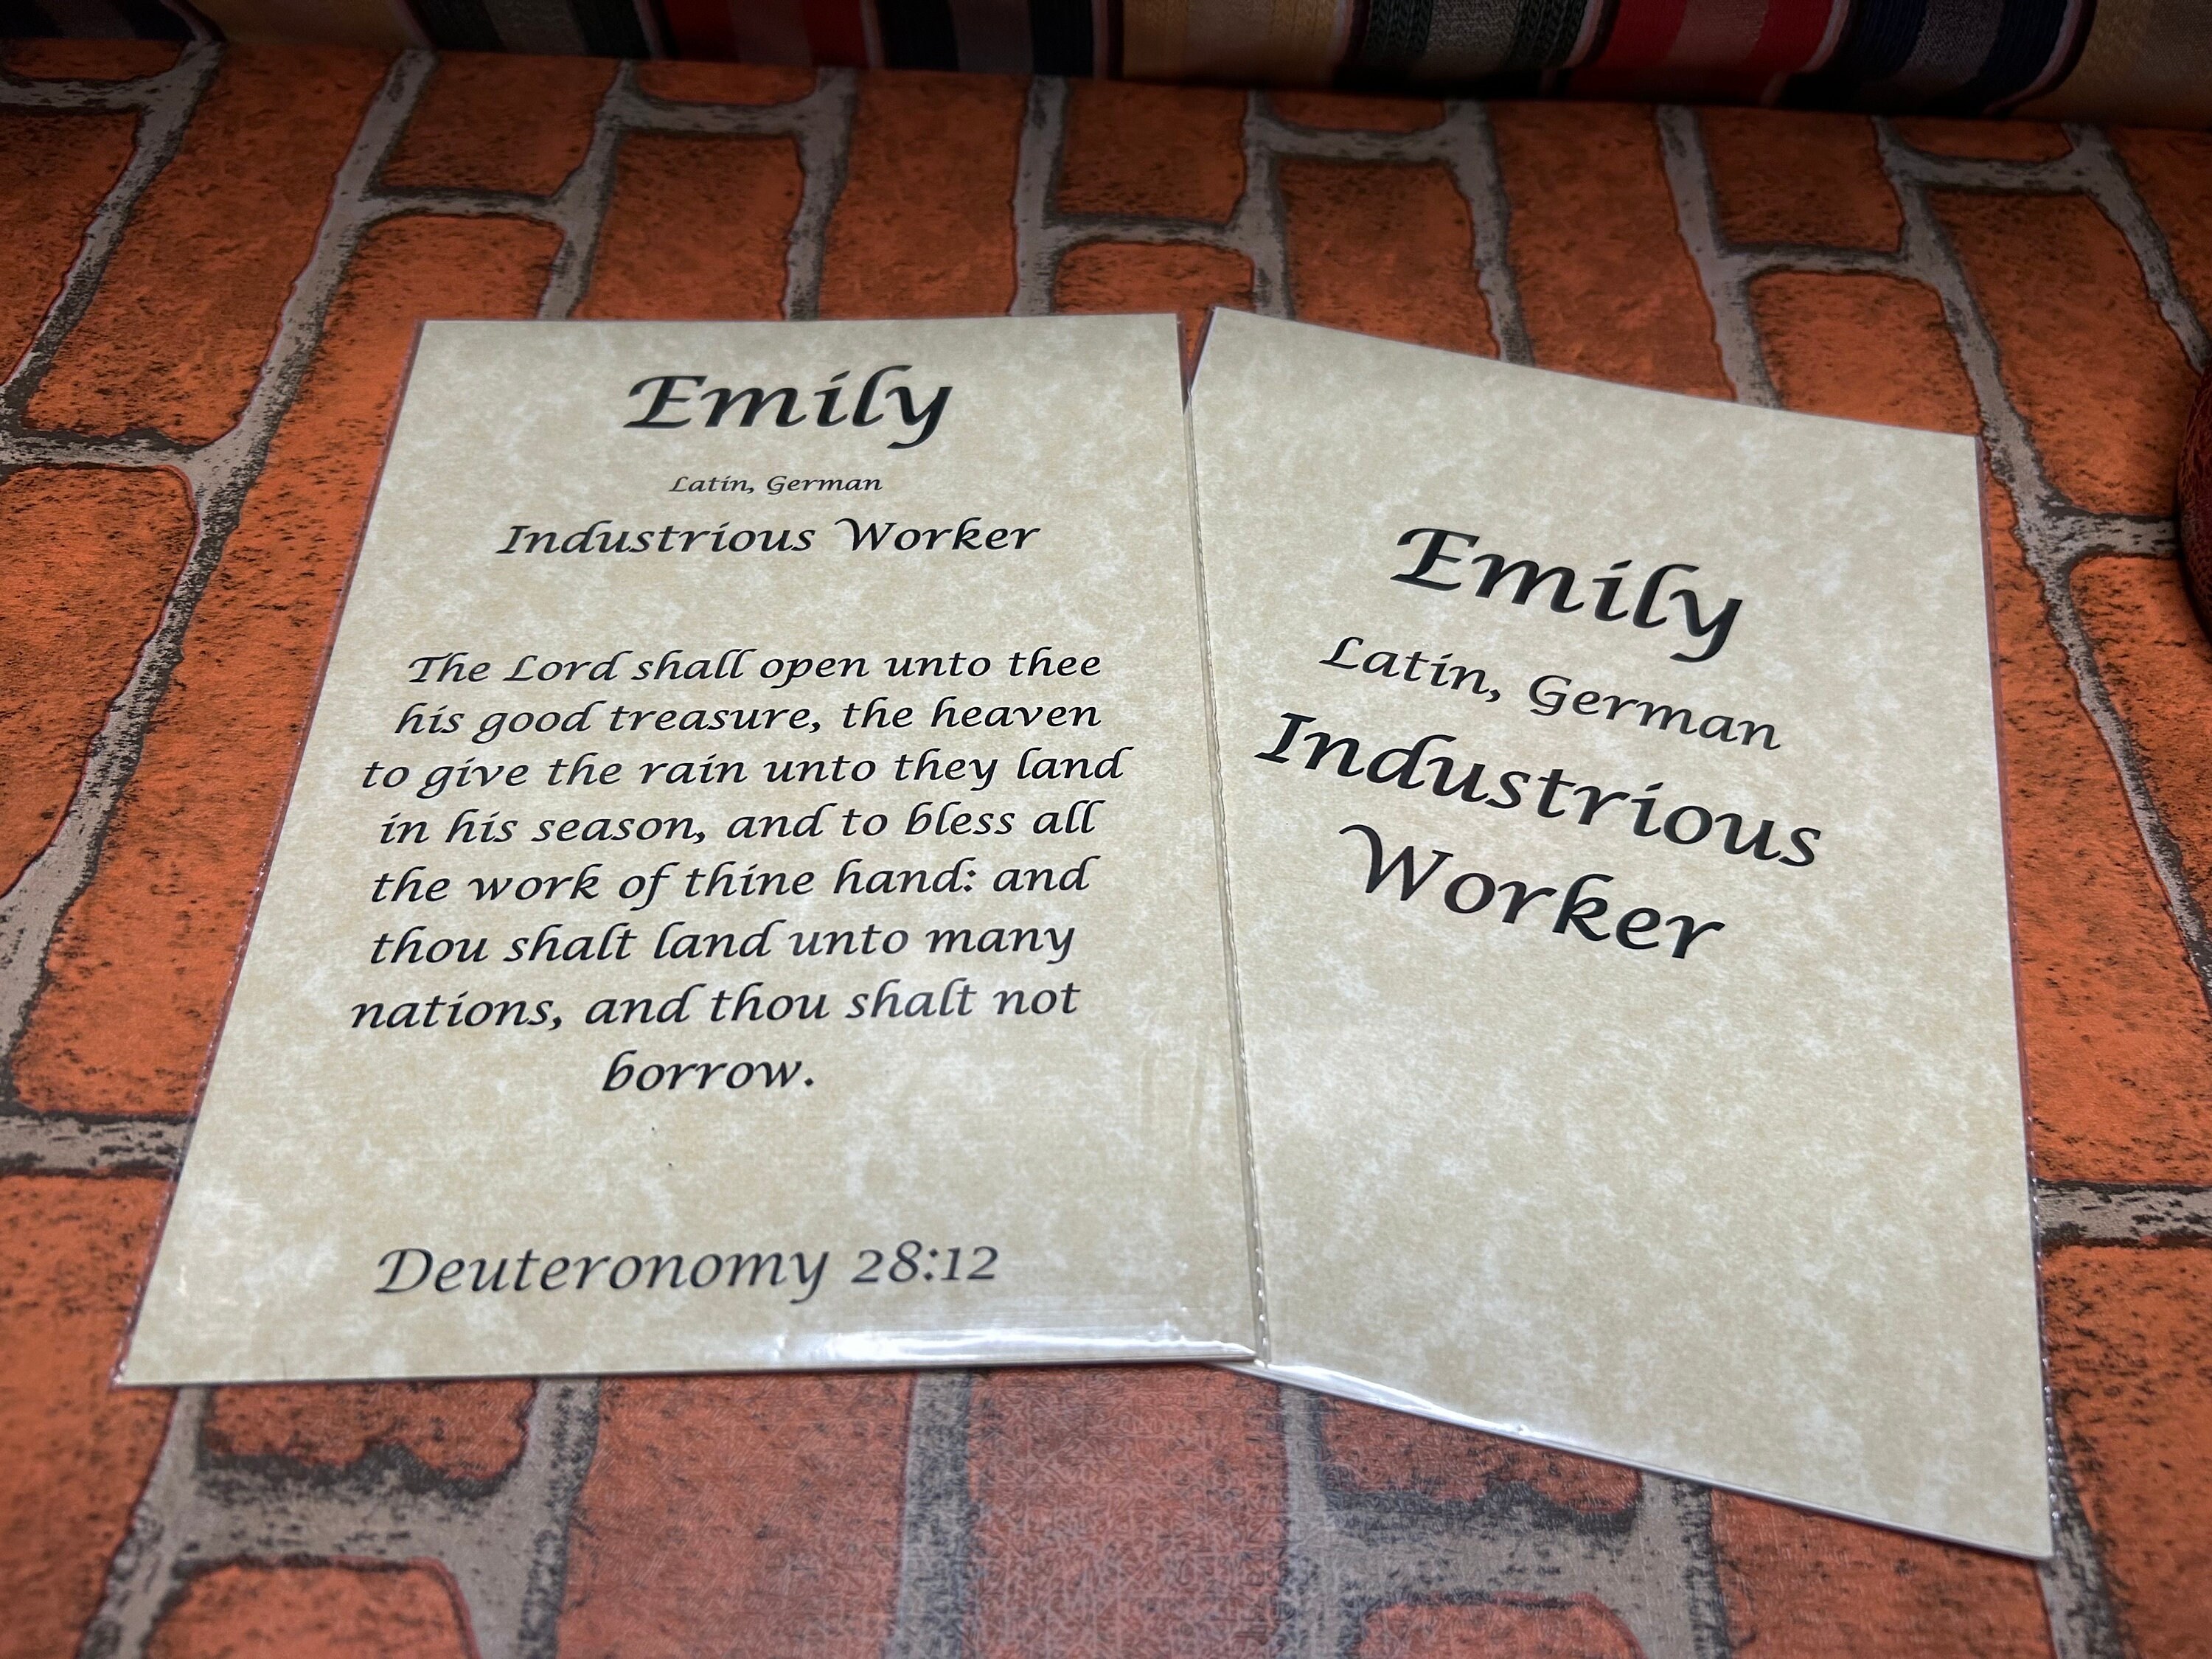 Emily
Latin, German
Industrious Worker
The Lord shall open unto thee
his good treasure, the heaven
to give the rain unto they land
in his season, and to bless all
the work of thine hand: and
thou shalt land unto many
nations, and thou shalt not
borrow.
Deuteronomy 28:12
Emily
Latin, German
Industrious
Worker